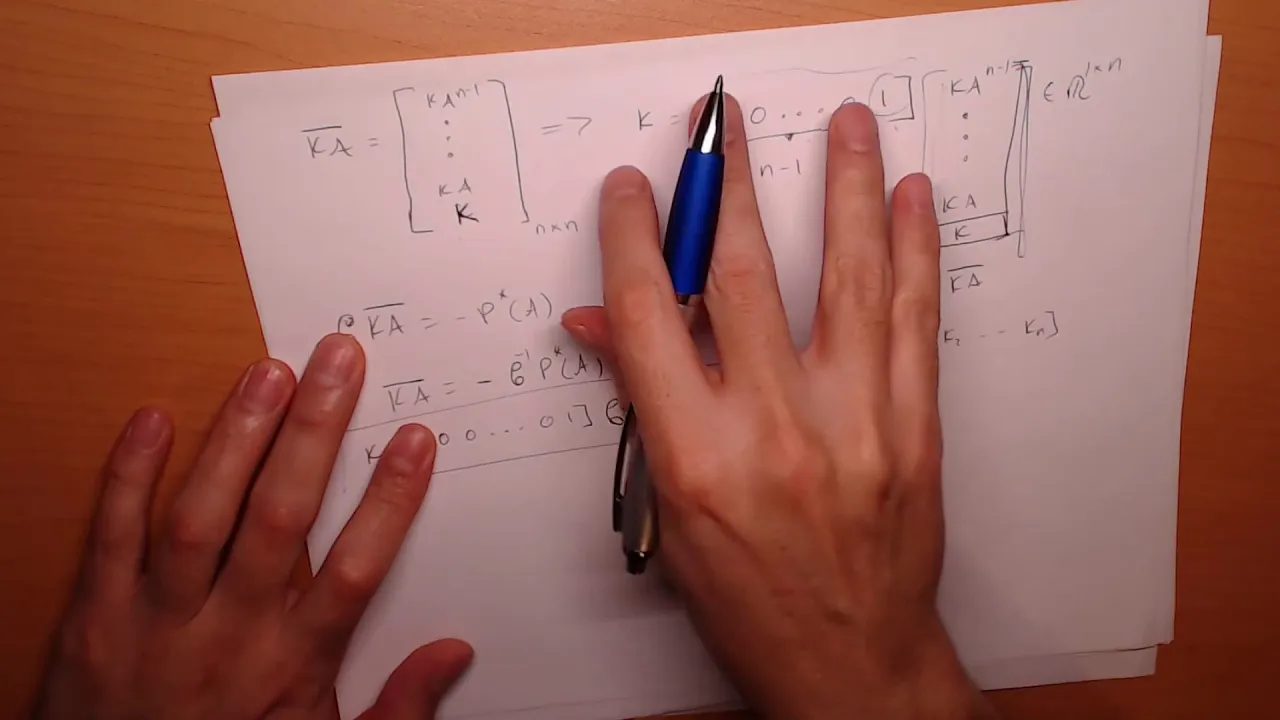 K̅A̅ = [ KA^{n-1} ⋮ KA K ]_{n×n} => K = 0 ... 0 1 ] [ KA^{n-1} ⋮ KA K ] ∈ ℝ^{1×n}
n-1
K̅A̅
C K̅A̅ = - P*(A)
K₂ ... Kn]
K̅A̅ = - C^{-1} P*(A)
K 0 0 ... 0 1] C